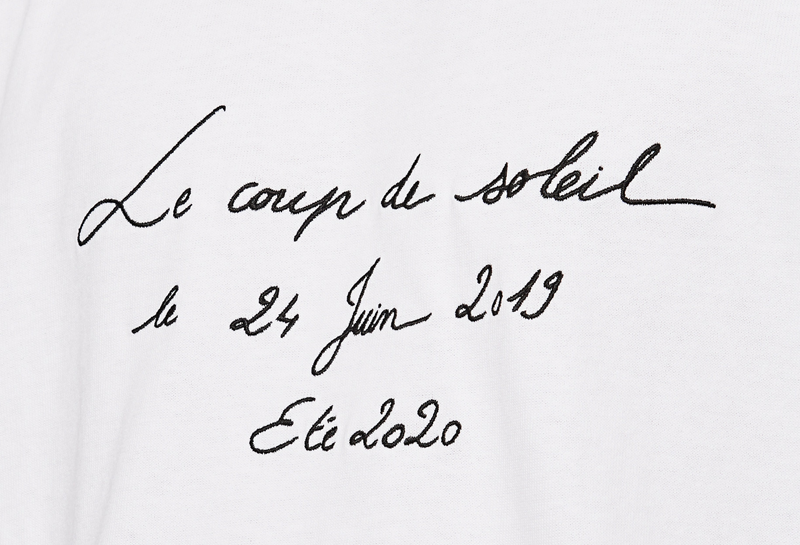 Le coup de soleil
le 24 Juin 2019
Eté 2020